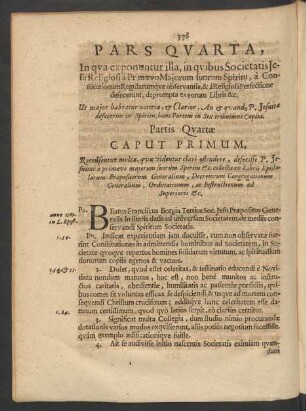 376
PARS QVARTA,
In qva exponuntur illa, in qvibus Societatis Je-
su Religiosi à Primævo Majorum suorum Spiritu, à Con-
stitutionum Regularumqve observantia, & à Religiosa Perfectione
defecerunt, deprompta ex eorum Libris &c.
Ut major habeatur notitia, & Clarior, An & quando, P. Jesuitæ
defecerint in Spiritu, hanc Partem in Sex tribuimus Capita.
Partis Qvartæ
CAPUT PRIMUM,
Recensentur multa, quæ videntur clari ostendere, defecisse P. Je-
suitas à primævo majorum suorum Spiritu &c. collectæ ex Libro Episto-
larum Præpositorum Generalium, Decretorum Congregationum
Generalium, Ordinationum, ac Instructionum ad
Superiores &c.
Beatus Franciscus Borgia Tertius Soc. Jesu Præpositus Gene-
ralis in literis datis ad universam Societatem, de mediis con-
servandi Spiritus Societatis.
in L. Epist.
1. Indicat experientiam jam docuisse, cum non observatæ fue-
rint Constitutiones in admittendis hominibus ad Societatem, in
hominum copia, non in Spiritu lætitiam, ac nuditatem spiritualium
donorum copiis egenos & vacuos.
2. Dolet, quod eset celeritas, & festinatio ordinandi è
Novitiatu nondum maturos, hoc est, non bene munitos ac instructos
caritatis, obedientiæ, humilitatis ac patientiæ præsidiis, quibus
comes est voluntas efficax se despiciendi ac usque ad mortem con-
sequendi Christum crucifixum; additque hanc celeritatem esse da-
matum certissimum, quod quò latiùs serpit, eò clariùs cernitur.
3. Significat multa Collegia, dum studio nimio procurandæ
dotationis varios modos exquisierunt, aliis potiùs negotium facessisse,
quàm exemplo ædificationisque fuisse.
4. Ait se audivisse initio nascentis Societatis eximium quan-
dam